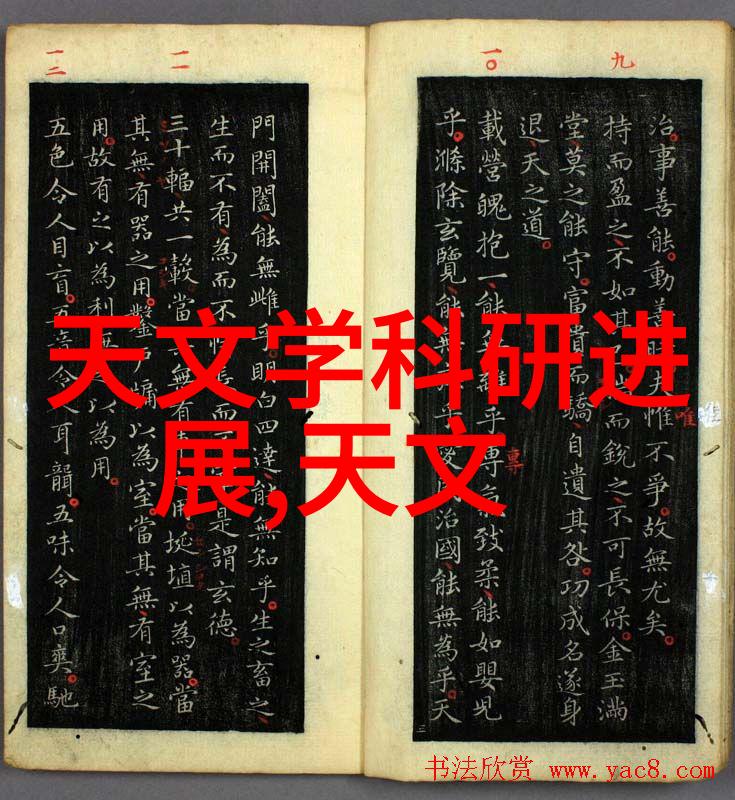 九
一〇
一一
一二
治。事善能。動善時夫惟不爭。故無尤矣。
持而盈之、不如其而銳之、不可長保。金玉滿
堂、莫之能守。富貴而驕、自遺其咎。功成名遂身
退、天之道。
載營魄抱一、能離乎專致柔、能如嬰兒
乎。滌除玄覽、能無乎治國、能無為乎。天
唯
專
門開闔、能無雌乎。明白四達、能無知乎。生之畜之、
生而不有、為而不而是謂玄德。
三十輻、共一轂、當無有用。埏埴以為器、當
其無、有器之用。鑿戶牖以為室。當其無、有室之
用。故有之以為利之以為用。
五色令人目盲。五音令人耳聾。五味令人口爽。馳
天文学科研进
展,天文
书法欣赏 www.yac8.com